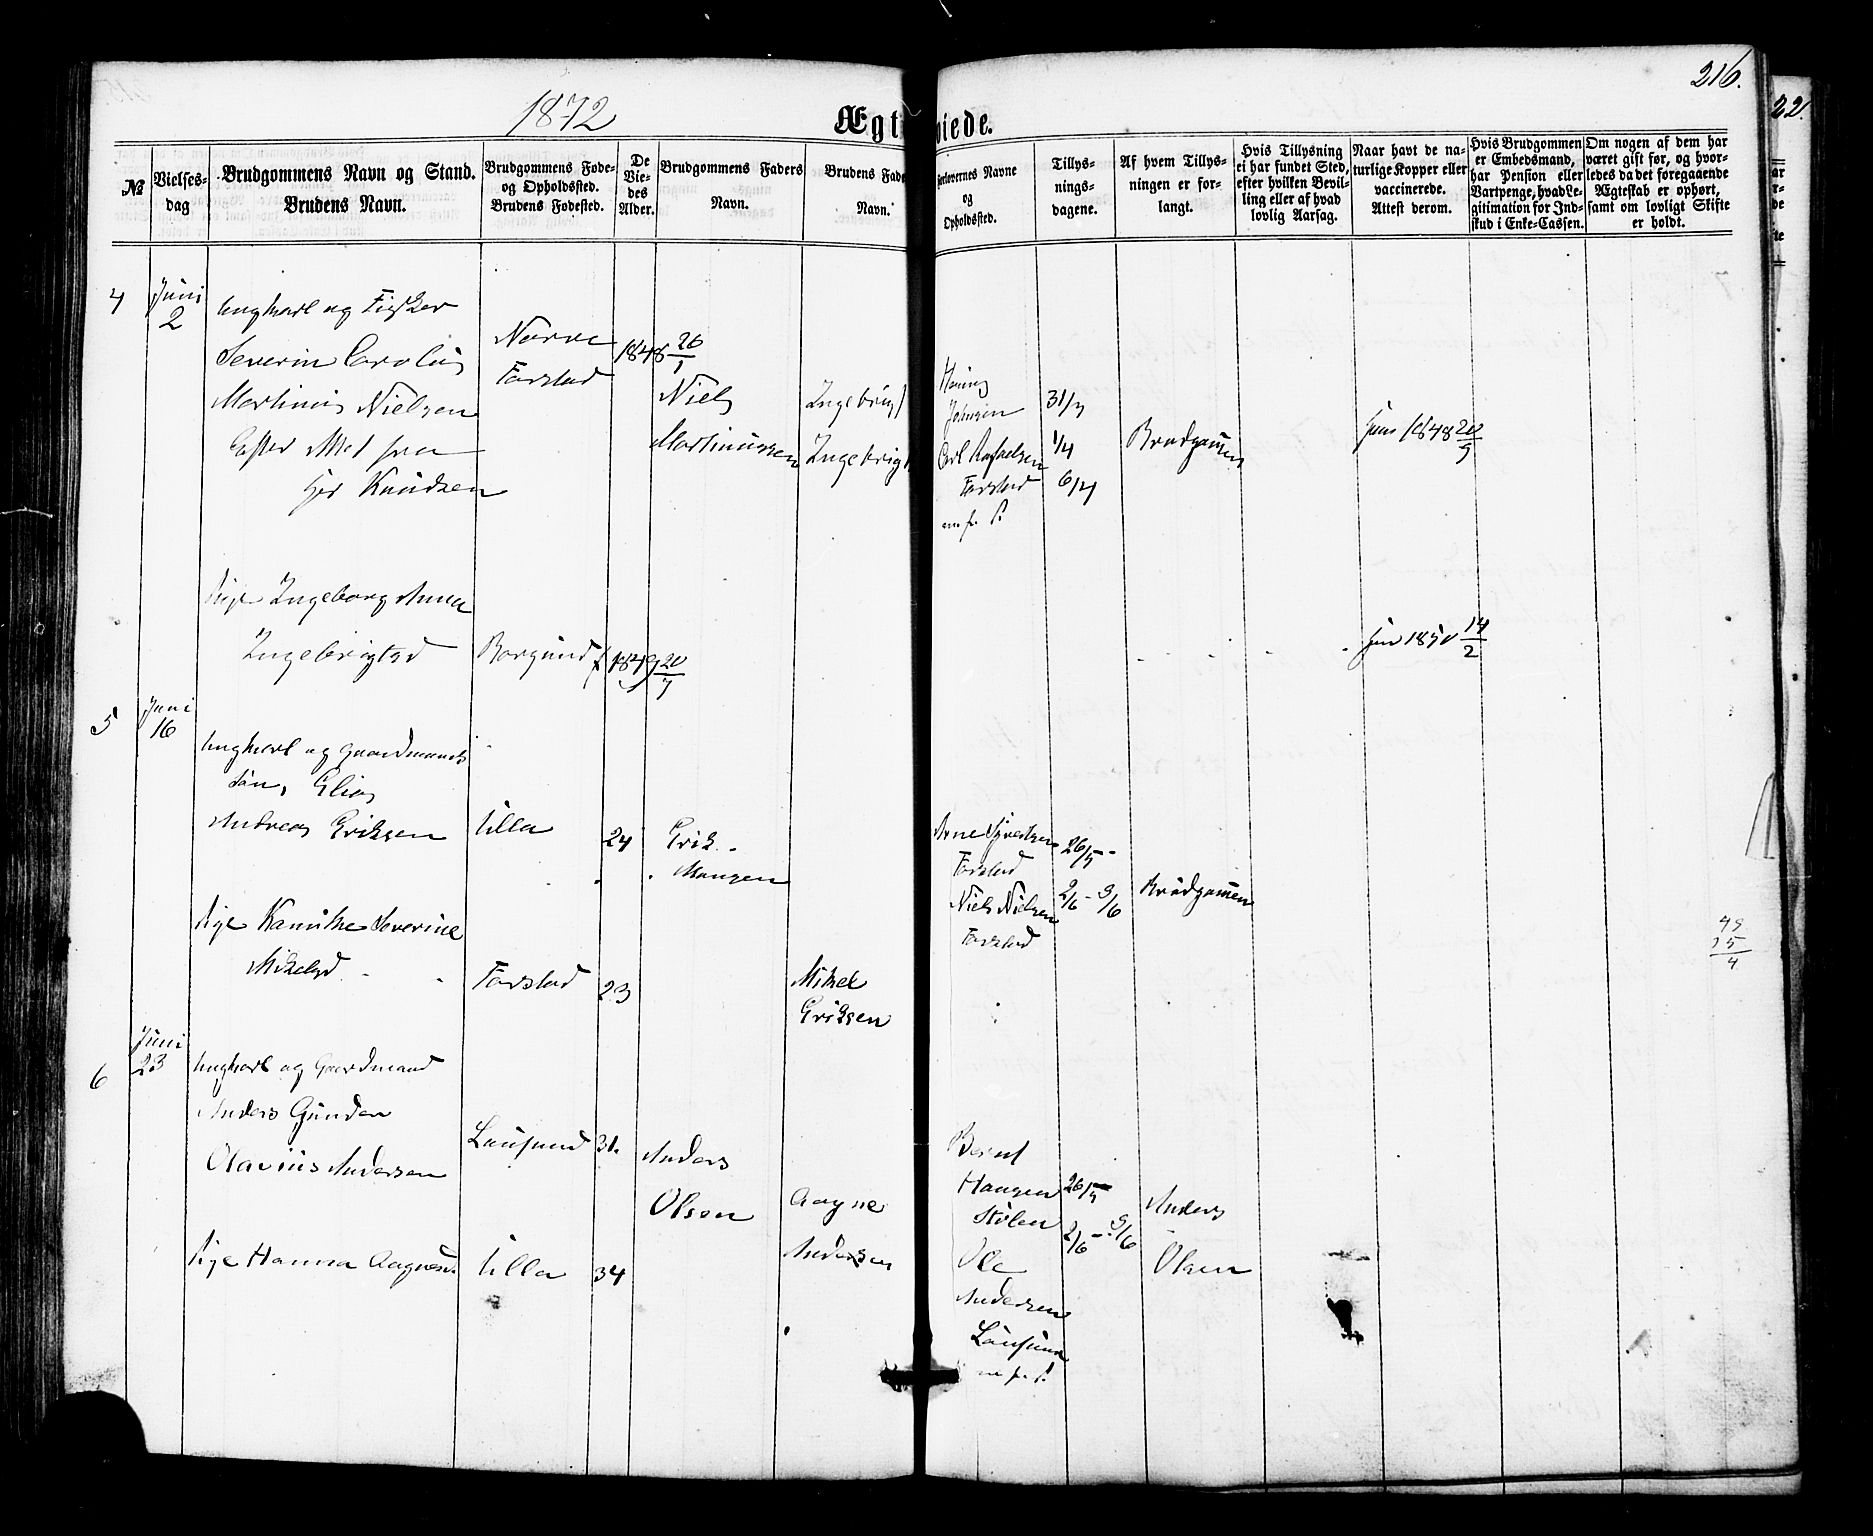 216.
1872
Ægt viede.
22.
№
Vielses-
dag
Brudgommens Navn og Stand.
Brudens Navn.
Brudgommens Føde-
og Opholdssted.
Brudens Fødested.
De
Vie-
des
Alder.
Brudgommens Faders
Navn.
Brudens Fade
Navn.
Forlovernes Navne
og
Opholdssted.
Tillys-
nings-
dagene.
Af hvem Tillys-
ningen er for-
langt.
Hvis Tillysning
ei har fundet Sted,
efter hvilken Bevil-
ling eller af hvad
lovlig Aarsag.
Naar havt de na-
turlige Kopper eller
vaccinerede.
Attest derom.
Hvis Brudgommen
er Embedsmand,
har Pension eller
Vartpenge, hvad Le-
gitimation for Ind-
skud i Enke-Cassen.
Om nogen af dem har
været gift før, og hvor-
ledes da det foregaaende
Ægteskab er ophørt,
samt om lovligt Skifte
er holdt.
4
Juni
2
Ungkarl og Fisker
Severin Carolius
Martinus Nielsen
Efter Attest fra
Knudsen
Norve
Farstad
1848 20/1
Niels
Martinussen
Ingebrigt
Ingebrigt
Johnsen
Carl Rafaelsen
Farstad
31/3
1/4
6/4
Brudgommen
1848 20/9
Pige Ingeborg Anna
Ingebrigtsd
Borgund
1849 20/7
1850 14/2
5
Juni
16
Ungkarl og Gaardmands
Søn, Elias
Andreas Eriksen
Ulla
24
Erik
Monsen
Arne Syvertsen
Farstad
Niels Nielsen
Farstad
26/5
2/6 - 9/6
Brudgommen
Pige Severine
Mikelsd
Farstad
23
Mikel
Eriksen
6
Juni
23
Ungkarl og Gaardmand
Anders Gunder
Olavius Andersen
Lausund
31.
Anders
Olsen
Bernt
Hansen
Stølen
Ole
Andersen
Lausund
26/5
2/6 - 9/6
Anders
Olsen
Pige Hanna Aagnesd.
Ulla
34
Aagne
Andersen